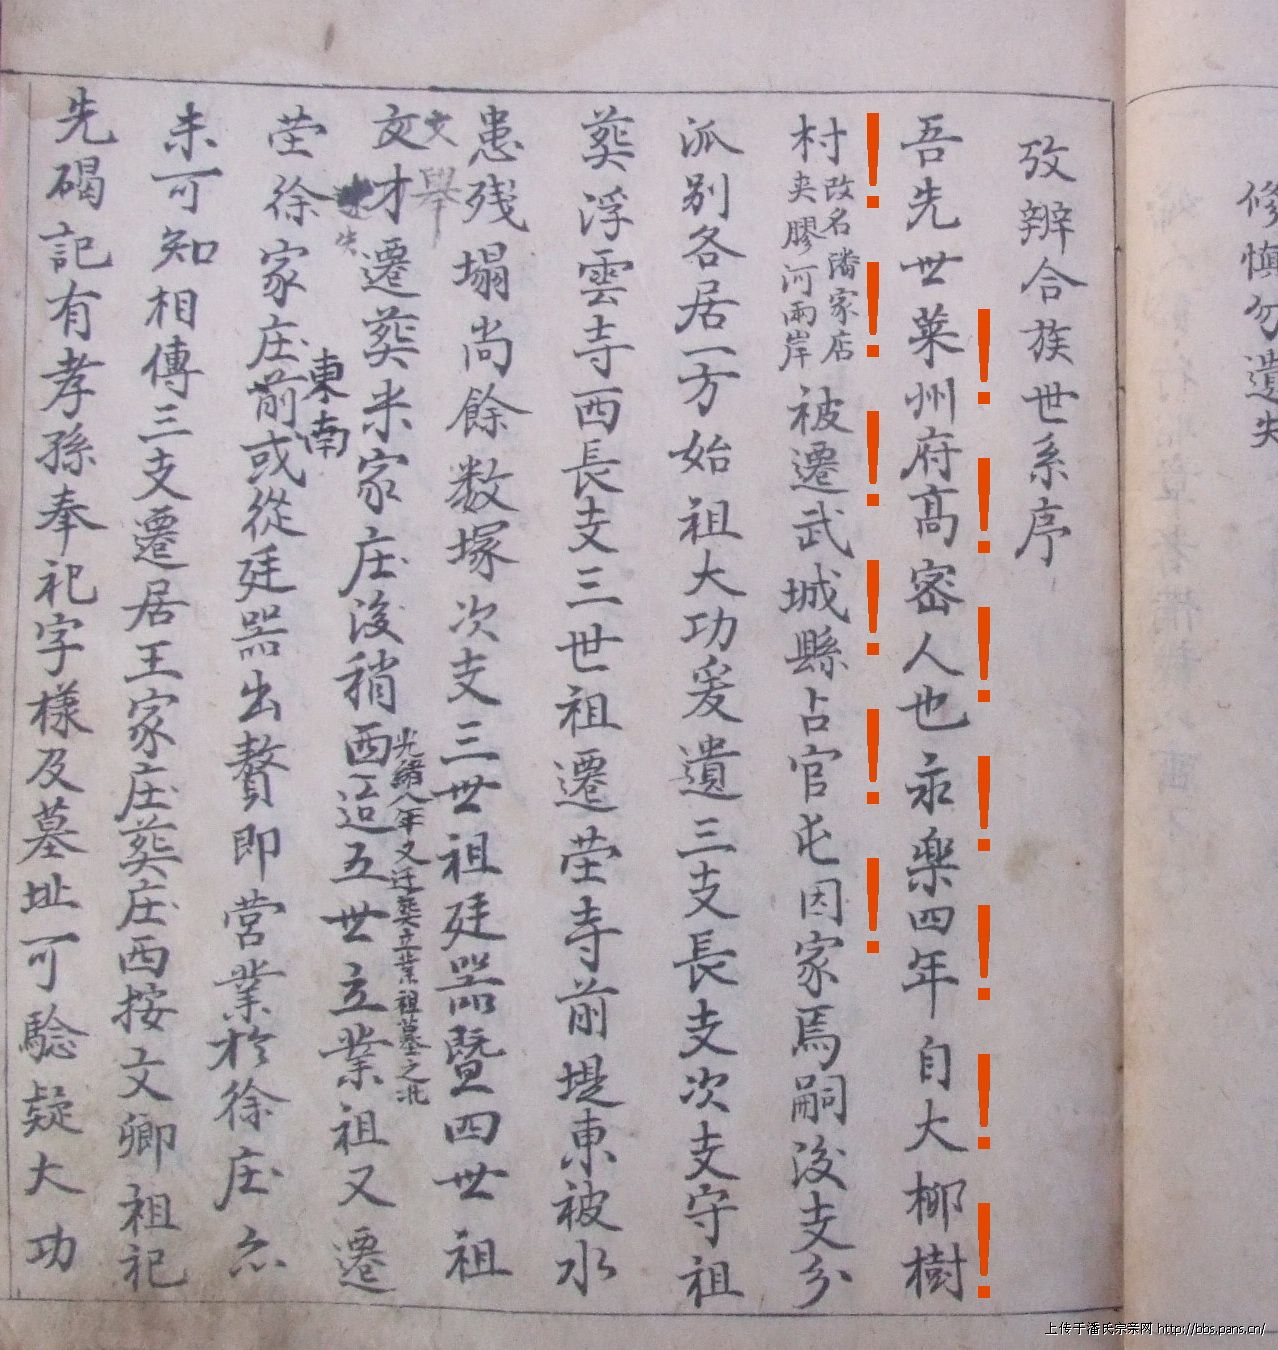 修慎勿遺失
攷辨合族世系序
吾先世莱州府高密人也永樂四年自大柳樹
村改名潘家店夾膠河兩岸被遷武城縣占官屯因家焉嗣後支分
派别各居一方始祖大功爰遺三支長支次支守祖
葬浮雲寺西長支三世祖遷茔寺前堤東被水
患残塌尚餘数塚次支三世祖廷器暨四世祖
文舉
文才遷葬米家庄後稍西迨五世立業祖又遷
光緒八年又迁葬立業祖墓之北
茔徐家庄前或從廷器出贅即営業於徐庄亦
東南
未可知相傳三支遷居王家庄葬庄西按文卿祖祀
先碣記有孝孫奉祀字樣及墓址可驗疑大功
上传于潘氏宗亲网 http://bbs.pans.cn/